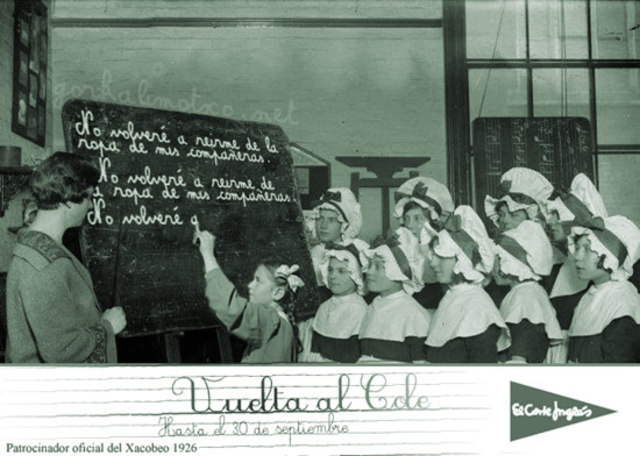 gorkalimotxo.net
No volveré a reirme de la
ropa de mis compañeras.
No volveré a reirme de
a ropa de mis compañeras.
No volveré a
Vuelta al Cole
Hasta el 30 de septiembre
El Corte Inglés
Patrocinador oficial del Xacobeo 1926